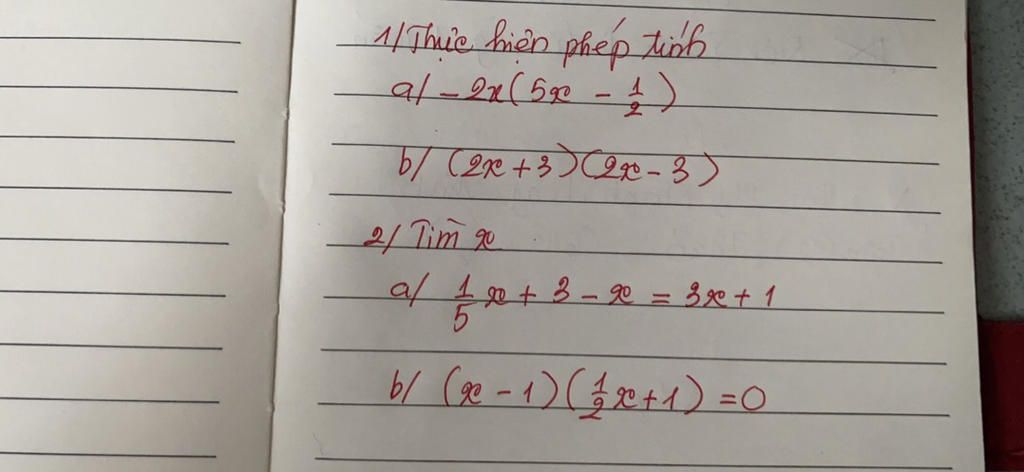 1/ Thực hiện phép tính
a/ -2x(5x - 1/2)
b/ (2x + 3)(2x - 3)
2/ Tìm x
a/ 1/5 x + 3 - x = 3x + 1
b/ (x - 1)(1/2 x + 1) = 0